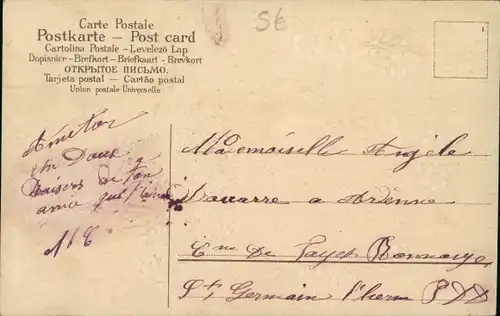 Carte Postale
Postkarte – Post card
Cartolina Postale – Levelező Lap
Dopisnice – Brefkort – Briefkaart – Brevkort
ОТКРЫТОЕ ПИСЬМО.
Tarjeta postal – Cartão postal
Union postale Universelle
S€
1
un Doux
Baisers de ton
amie
Mademoiselle Angèle
a
Cne De
St Germain l'herm P DD